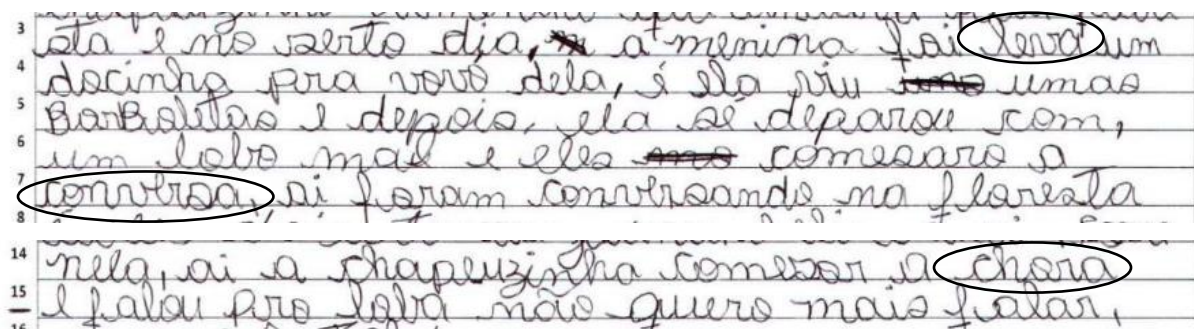 3 sta e no serto dia, a menina foi leva um
4 docinho pra vovó dela, é ela viu umas
5 BorBoletas e depois, ela se deparou com,
6 um lobo mal e eles comesaro a
7 conversa, ai foram conversando na floresta
8
14 nela, ai a chapeuzinha comesor a chora
15 e falou pro lobo não quero mais falar,
16